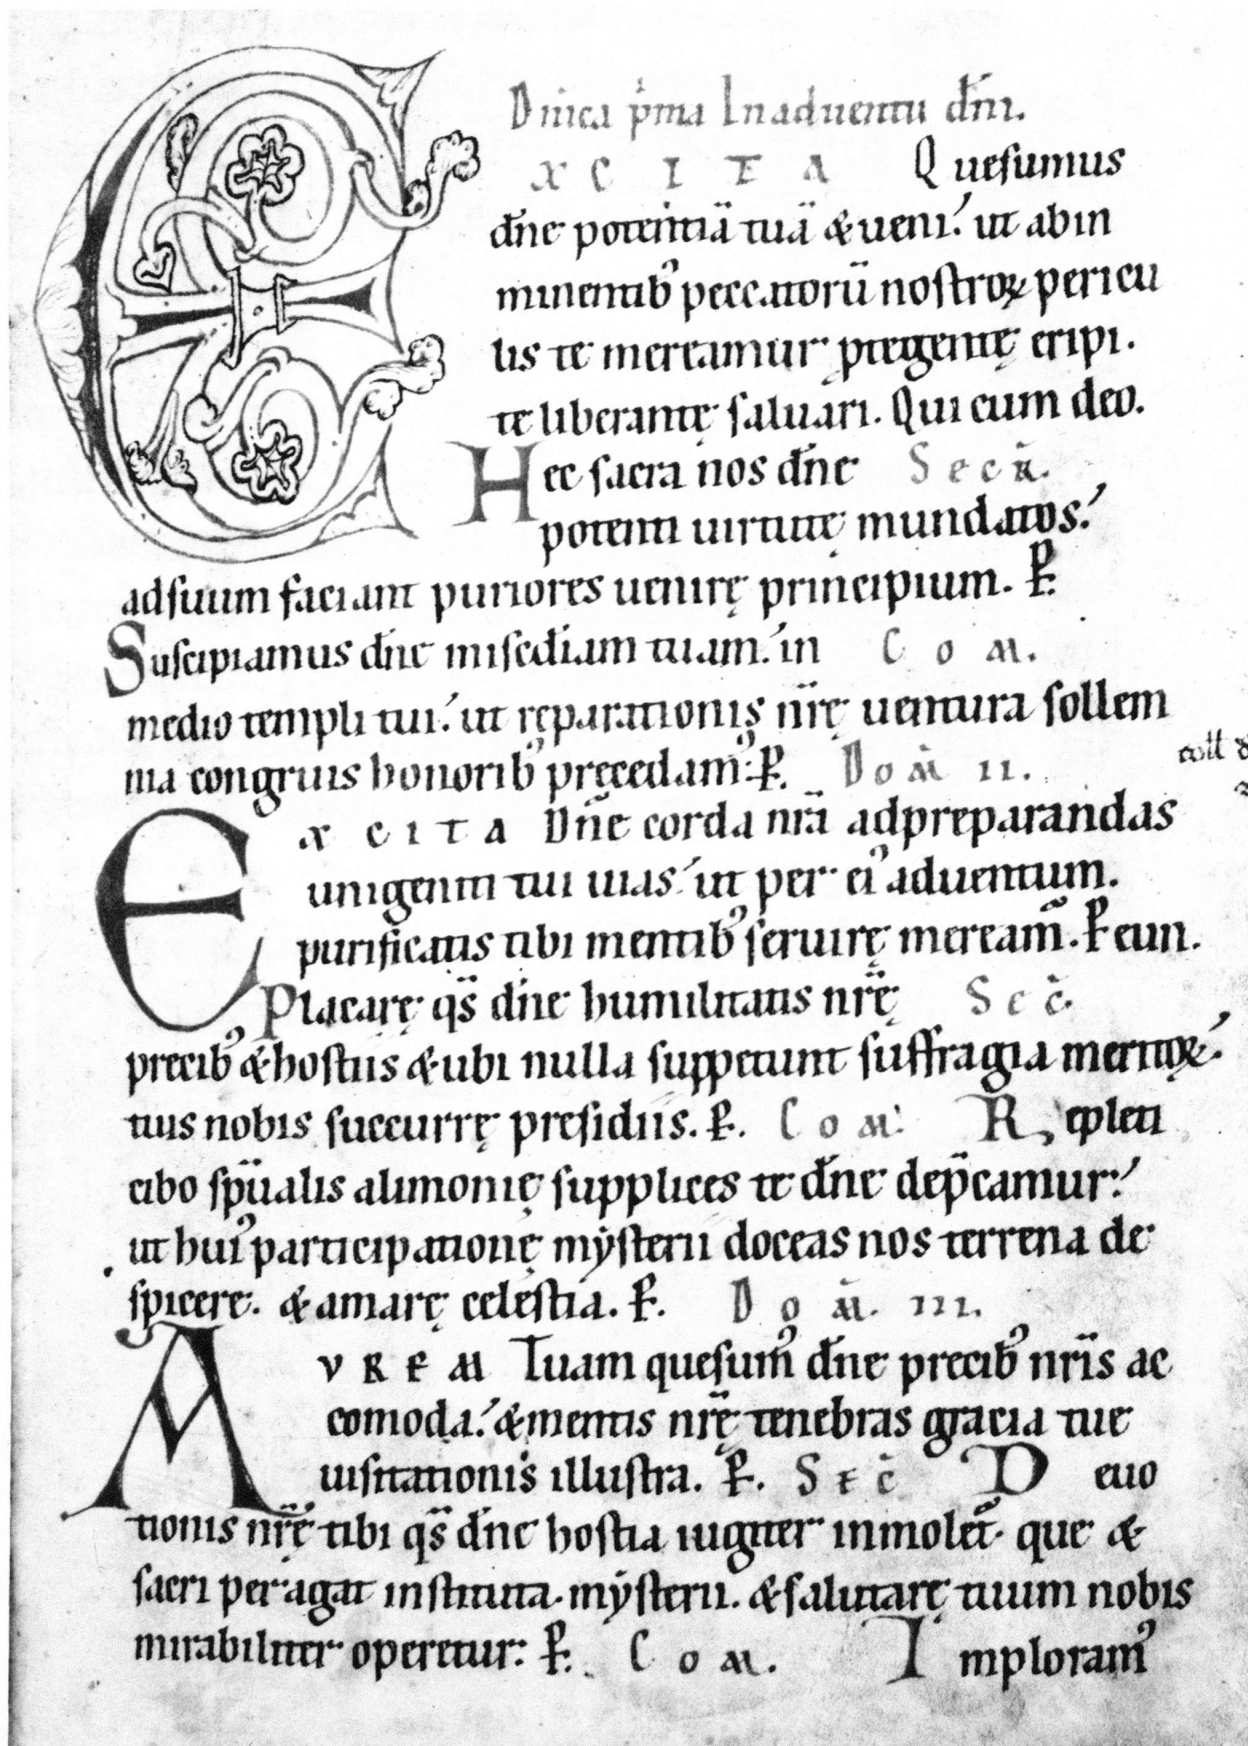 Dnica p̾ma In aduentu dn̄i.
EXCITA Quesumus
dn̄e potentiā tuā & ueni.' ut ab in
minentib; peccatorū nostroꝝ pericu
lis te mereamur ꝓtegentę eripi.
te liberantę saluari. Qui cum deo.
Hec sacra nos dn̄e Secr̄.
potenti uirtutę mundatos.'
ad suum faciant puriores uenirę principium. P̲.
Suscipiamus dn̄e misc̄diam tuam.' in Com.
medio templi tui.' ut ręparationis nr̄ę uentura sollem
nia congruis honorib; pręcedamꝰ. P̲. Dom̄ II.
EXCITA Dn̄e corda nr̄a ad preparandas
unigeniti tui uias.' ut per eiꝰ aduentum.
purificatis tibi mentibꝰ seruirę mereamꝰ. P̲ eun.
Placarę qs̄ dn̄e humilitatis nr̄ę Sec̄.
precibꝰ & hostiis & ubi nulla suppetunt suffragia meritoꝝ.'
tuis nobis succurrę presidiis. P̲. Com̄. Repleti
cibo sp̄ualis alimonię supplices te dn̄e dep̄camur.'
ut huiꝰ participationę mẏsterii doceas nos terrena de
spicere. & amarę celestia. P̲. Dom̄. III.
AVREM Tuam quesumꝰ dn̄e precibꝰ nr̄is ac
comoda.' & mentis nr̄ę tenebras gracia tue
uisitationis illustra. P̲. Sec̄ Deuo
tionis nr̄ę tibi qs̄ dn̄e hostia iugiter inmolet̄. que &
sacri peragat instituta. mẏsterii. & salutarę tuum nobis
mirabiliter operetur. P̲. Com. Imploramꝰ
coll &